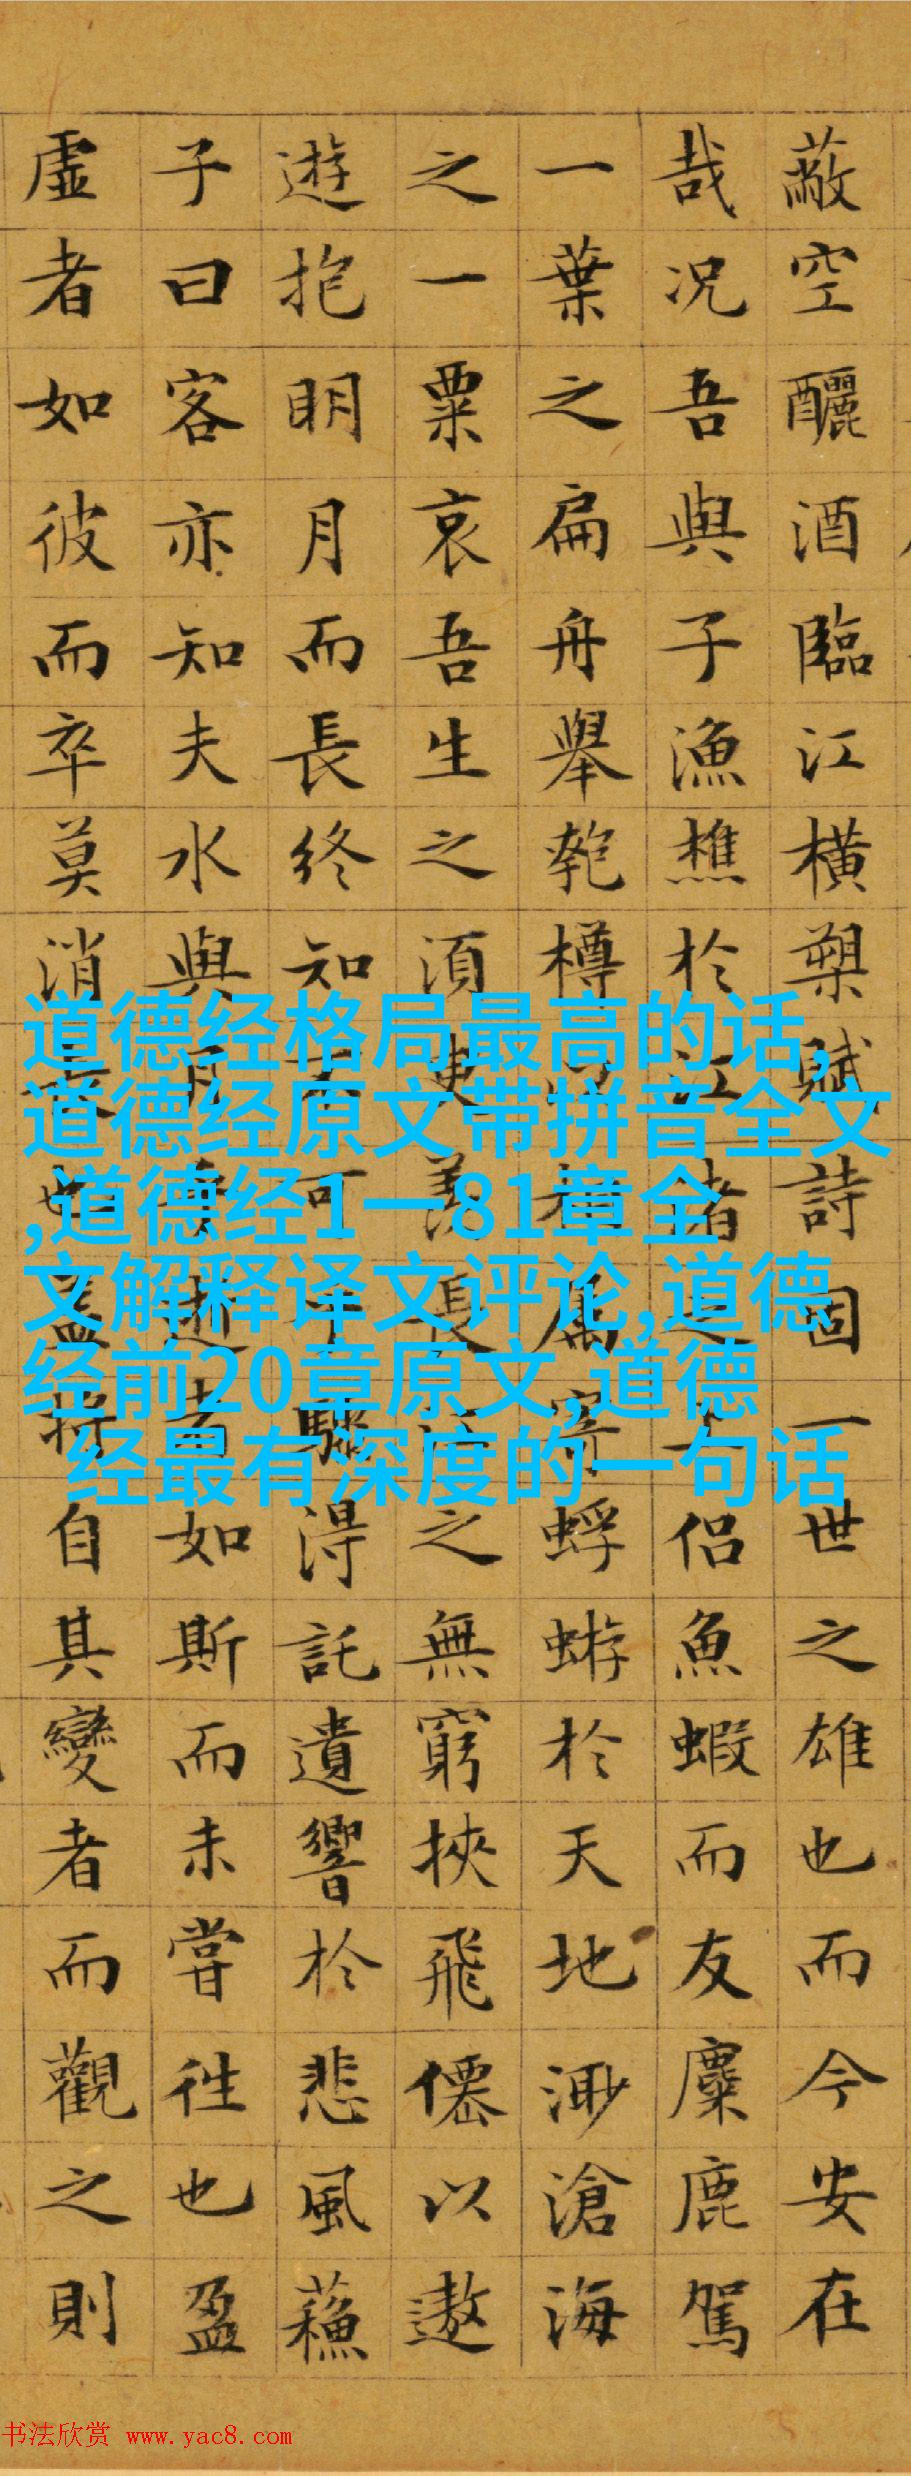 蔽空釃酒臨江橫槊賦詩固一世之雄也而今安在
哉况吾與子漁樵於江渚之上侶魚蝦而友麋鹿駕
一葉之扁舟舉匏樽以相属寄蜉蝣於天地渺滄海
之一粟哀吾生之須臾羡長江之無窮挾飛僊以遨
遊抱明月而長終知不可乎驟得託遺響於悲風蘓
子曰客亦知夫水與月乎逝者如斯而未嘗往也盈
虛者如彼而卒莫消長也蓋將自其變者而觀之則
道德经格局最高的话,
道德经原文带拼音全文
,道德经1一81章全
文解释译文评论,道德
经前20章原文,道德
经最有深度的一句话
书法欣赏 www.yac8.com